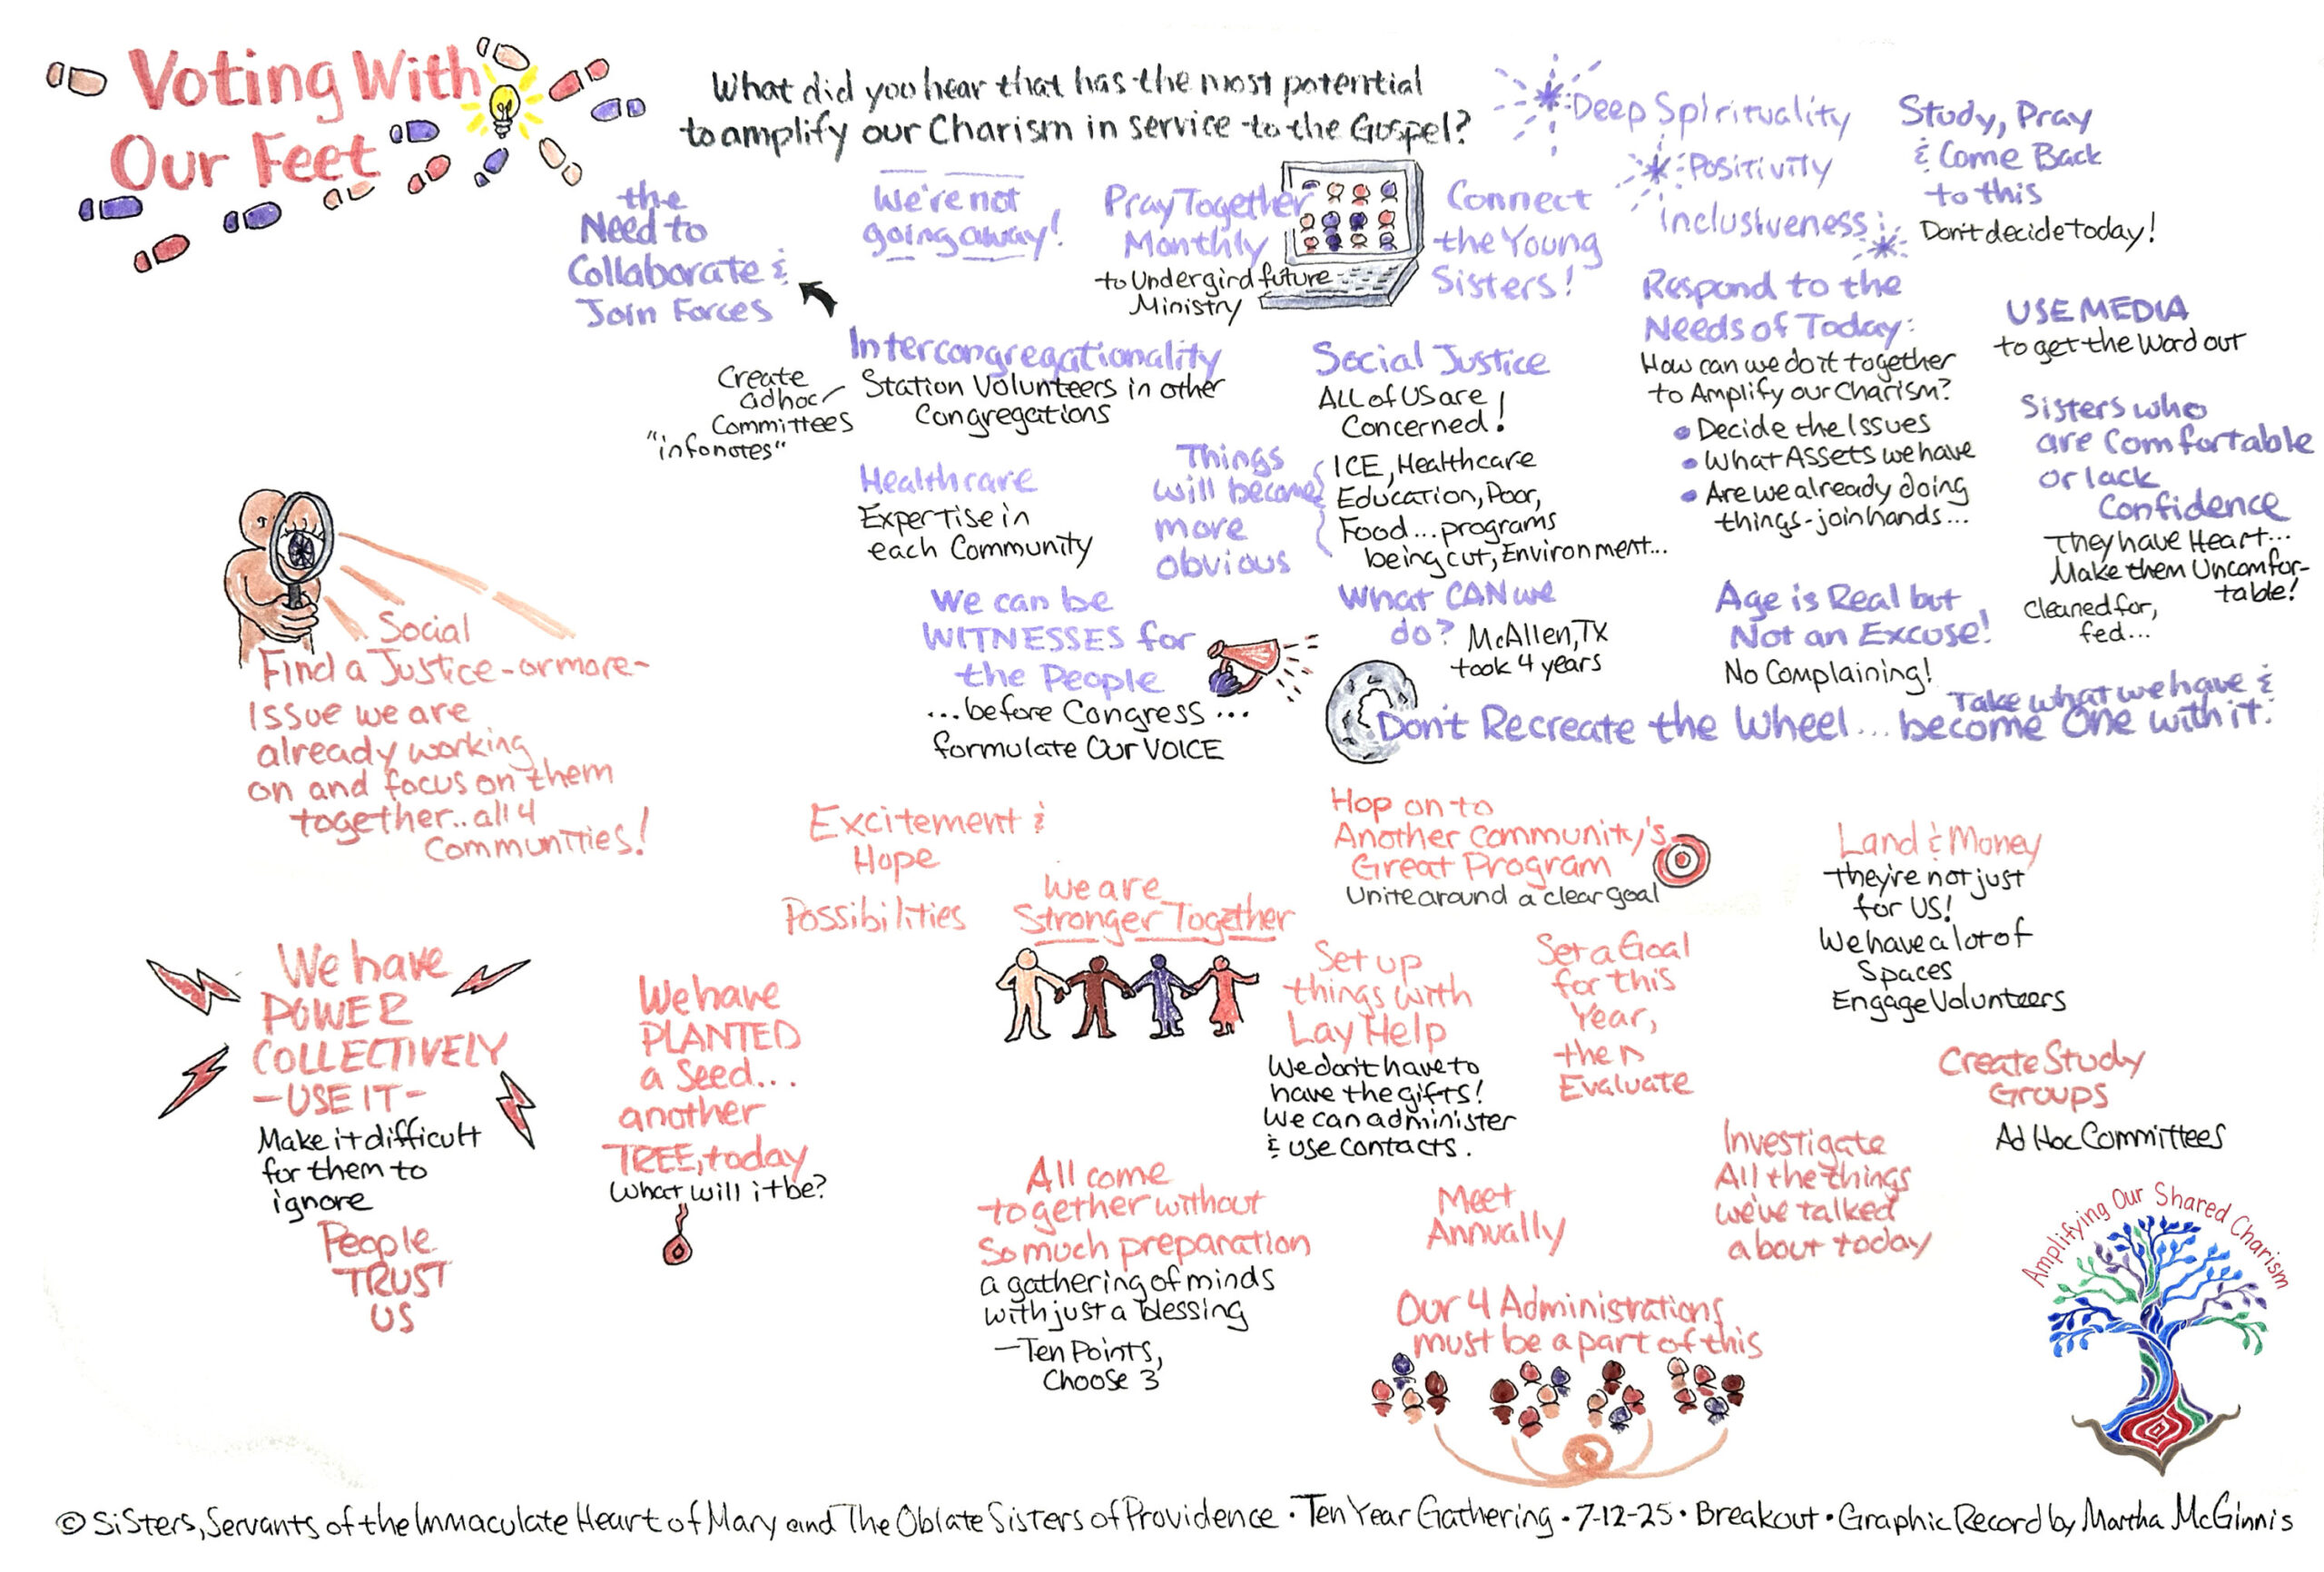 Voting With
Our Feet
What did you hear that has the most potential
to amplify our Charism in service to the Gospel?
the
Need to
Collaborate &
Join Forces
We're not
going away!
Pray Together
Monthly
to Undergird future
Ministry
Connect
the Young
Sisters!
Deep Spirituality
Positivity
Inclusiveness
Study, Pray
& Come Back
to this
Don't decide today!
Intercongregationality
Station Volunteers in other
Congregations
Create
adhoc
Committees
"infonotes"
Social Justice
ALL of US are
Concerned!
ICE, Healthcare
Education, Poor,
Food... programs
being cut, Environment...
Things
will become
more
obvious
Respond to the
Needs of Today:
How can we do it together
to Amplify our Charism?
• Decide the Issues
• What Assets we have
• Are we already doing
things-join hands...
USE MEDIA
to get the Word out
Sisters who
are Comfortable
or lack
Confidence
They have Heart...
Make them Uncomfor-
table!
Cleaned for,
fed...
Healthcare
Expertise in
each Community
We can be
WITNESSES for
the People
...before Congress...
formulate Our VOICE
What CAN we
do? McAllen, TX
took 4 years
Age is Real but
Not an Excuse!
No Complaining!
Don't Recreate the Wheel...
Take what we have &
become One with it.
Social
Find a Justice-or more-
Issue we are
already working
on and focus on them
together.. all 4
Communities!
Excitement &
Hope
Possibilities
We are
Stronger Together
Hop on to
Another Community's
Great Program
Unite around a clear goal
Land & Money
They're not just
for US!
We have a lot of
Spaces
Engage Volunteers
We have
POWER
COLLECTIVELY
-USE IT-
Make it difficult
for them to
ignore
People
TRUST
US
We have
PLANTED
a Seed...
another
TREE, today
What will it be?
Set up
things with
Lay Help
We don't have to
have the gifts!
We can administer
& use contacts.
Set a Goal
for this
Year,
then
Evaluate
Create Study
Groups
Ad Hoc Committees
All come
together without
So much preparation
a gathering of minds
with just a blessing
-Ten Points,
Choose 3
Meet
Annually
Investigate
All the things
we've talked
about today
Our 4 Administrations
must be a part of this
Amplifying Our Shared Charism
© Sisters, Servants of the Immaculate Heart of Mary and The Oblate Sisters of Providence • Ten Year Gathering • 7-12-25 • Breakout • Graphic Record by Martha McGinnis